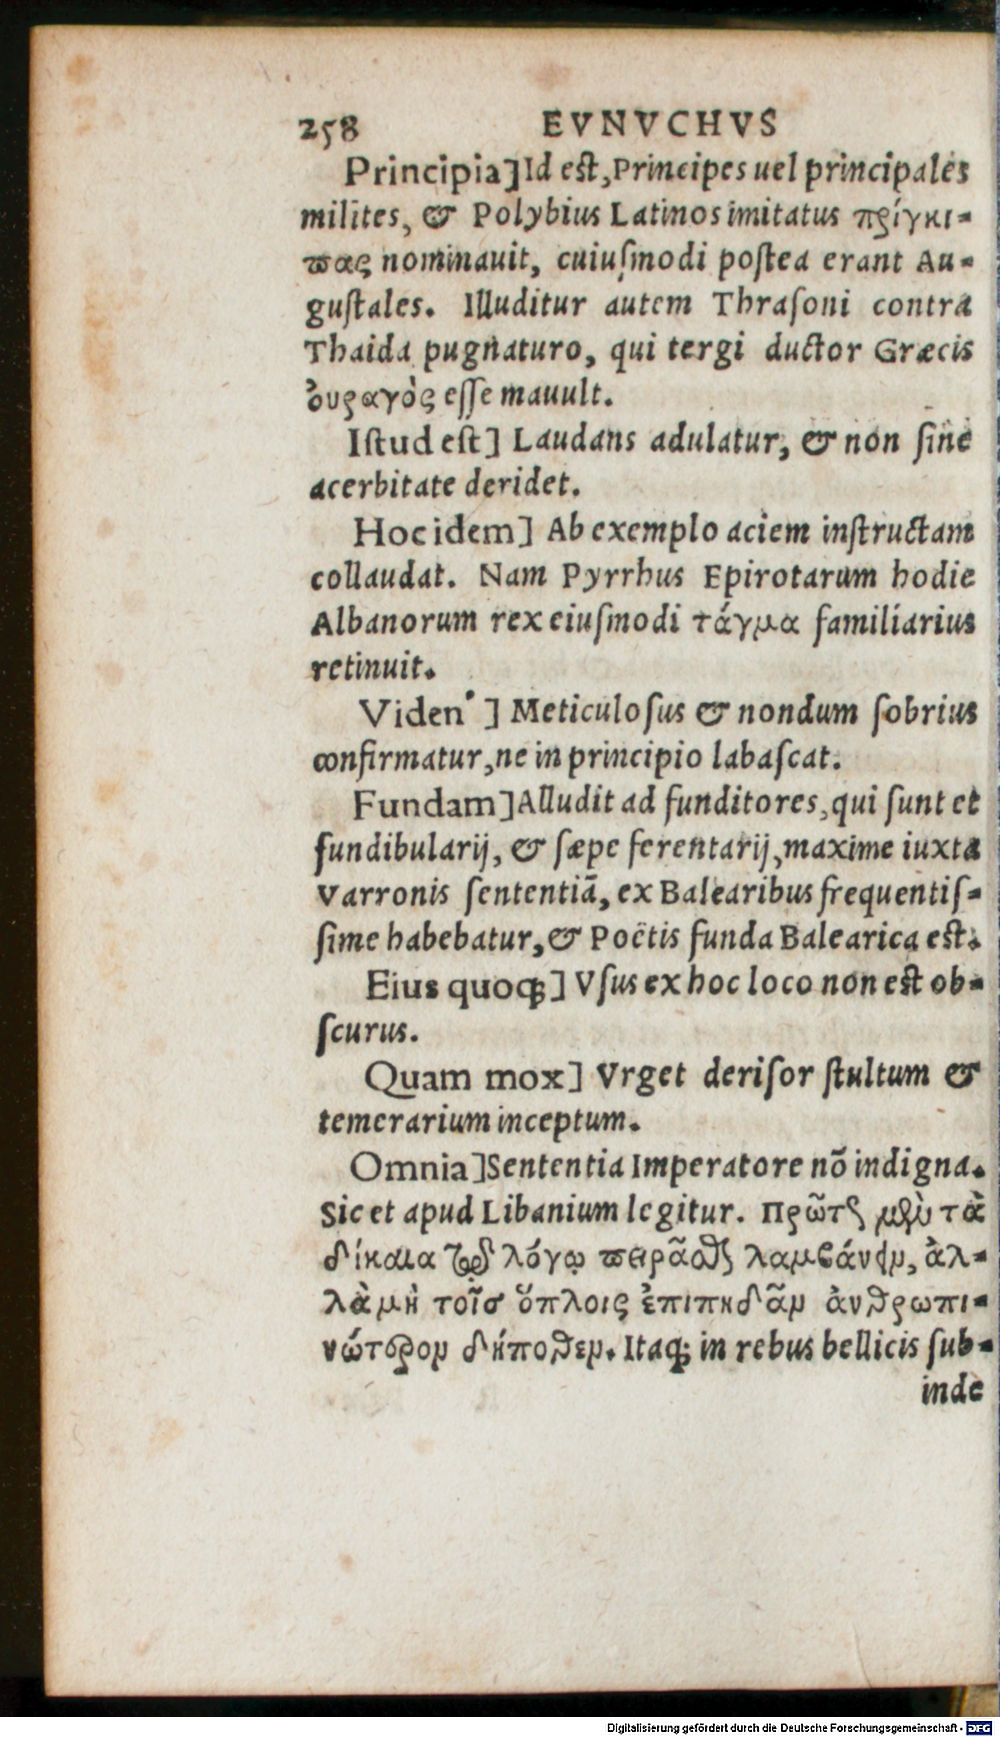 258 EVNVCHVS
Principia] Id est, Principes uel principales
milites, & Polybius Latinos imitatus πρίγκι-
πας nominauit, cuiuſmodi poſtea erant Au-
guſtales. Illuditur autem Thraſoni contra
Thaida pugnaturo, qui tergi ductor Græcis
ὀυραγὸς eſſe mauult.
Iſtud eſt] Laudans adulatur, & non ſine
acerbitate deridet.
Hoc idem] Ab exemplo aciem inſtructam
collaudat. Nam Pyrrhus Epirotarum hodie
Albanorum rex eiuſmodi τάγμα familiarius
retinuit.
Viden'] Meticuloſus & nondum ſobrius
confirmatur, ne in principio labaſcat.
Fundam] Alludit ad funditores, qui ſunt et
fundibularij, & ſæpe ferentarij, maxime iuxta
Varronis ſententiã, ex Balearibus frequentiſ-
ſime habebatur, & Poëtis funda Balearica eſt.
Eius quoq;] Vſus ex hoc loco non eſt ob-
ſcurus.
Quam mox] Vrget deriſor ſtultum &
temerarium inceptum.
Omnia] Sententia Imperatore nõ indigna.
Sic et apud Libanium legitur. πρῶτον μὲν τὰ
δίκαια τῷ λόγῳ πειρᾶσθαι λαμβάνειν, ἀλ-
λὰ μὴ τοῖσ ὅπλοις ἐπιπηδᾶν ἀνθρωπι-
νώτερον δήποθεν. Itaq; in rebus bellicis ſub-
inde
Digitalisierung gefördert durch die Deutsche Forschungsgemeinschaft - DFG